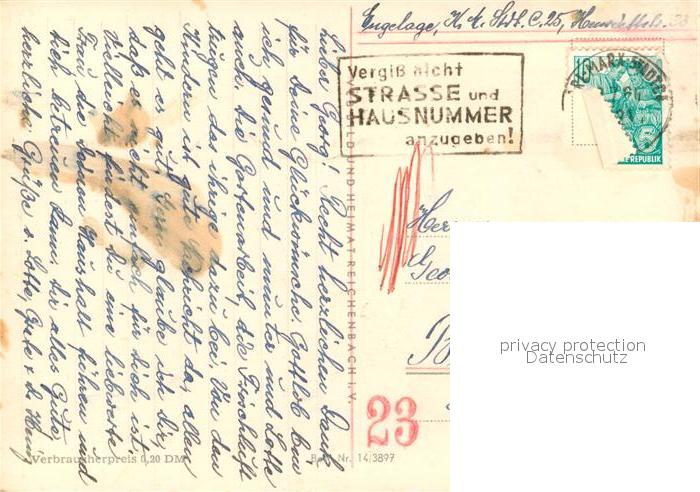 Engelage, K. M. Stdt. C.25,
Vergiß nicht
STRASSE und
HAUSNUMMER
anzugeben!
KARL-MARX-STADT
10
REPUBLIK
Lieber Georg! Recht herzlichen Dank
für Deine Glückwünsche. Gottlob bin
ich gesund und munter und Lotte
auch. Die Gartenarbeit, die Frischluft
tragen das ihrige dazu bei. Von den
Kindern ist gute Nachricht da, allen
geht es gut. Gern glaube ich dir,
daß es nicht einfach für dich ist.
Vielleicht findest du eine liebwerte
Frau die Deinen Haushalt führen und
dich betreuen kann. Dir alles Gute,
herzliche Grüße v. Lotte,
BILD UND HEIMAT REICHENBACH I. V.
Herrn
Geo
23
Verbraucherpreis 0,20 DM
Best. Nr. 14/3897
privacy protection
Datenschutz